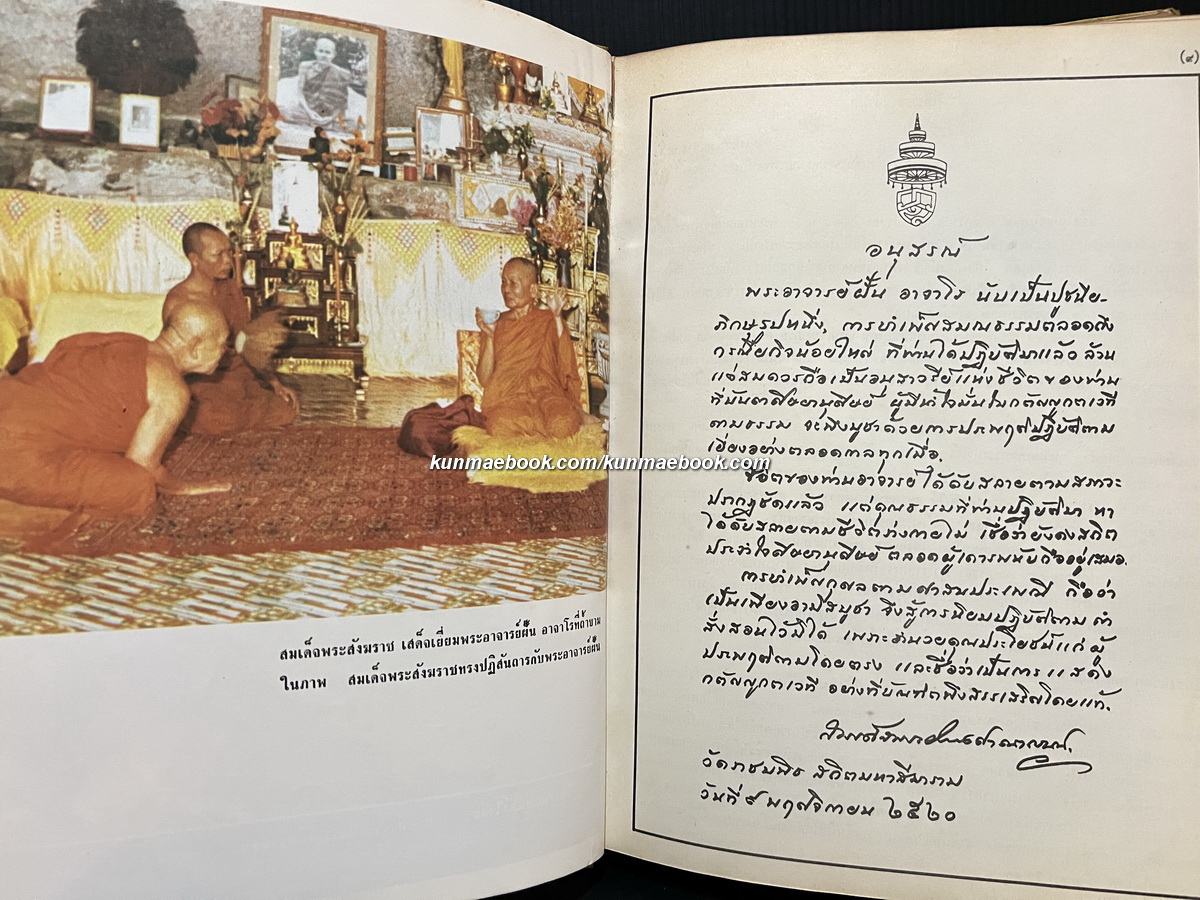 สมเด็จพระสังฆราช เสด็จเยี่ยมพระอาจารย์ฝั้น อาจาโรที่ถ้ำขาม
ในภาพ สมเด็จพระสังฆราชทรงปฏิสันถารกับพระอาจารย์ฝั้น
kunmaebook.com/kunmaebook.com
(๙)
อนุสรณ์
พระอาจารย์ฝั้น อาจาโร นับเป็นปูชนีย-
ภิกษุรูปหนึ่ง, การบำเพ็ญสมณธรรมตลอดถึง
กรณียกิจน้อยใหญ่ ที่ท่านได้ปฏิบัติมาแล้ว ล้วน
แต่สมควรถือเป็นอนุสาวรีย์แห่งชีวิตของท่าน
ที่บรรดาศิษยานุศิษย์ ผู้มีน้ำใจมั่นในกตัญญูกตเวที
ตามธรรม จะพึงบูชาด้วยการประพฤติปฏิบัติตาม
เยี่ยงอย่างตลอดกาลทุกเมื่อ.
ชีวิตของท่านอาจารย์ ได้ดับสลายตามสภาวะ
ปรากฏชัดแล้ว แต่คุณธรรมที่ท่านปฏิบัติมา หา
ได้ดับสลายตามชีวิตร่างกายไม่ เชื่อว่ายังคงสถิต
ประจำใจศิษยานุศิษย์ ตลอดผู้เคารพนับถืออยู่เสมอ.
การบำเพ็ญกุศลตามศาสนประเพณี ถือว่า
เป็นเพียงอามิสบูชา จึงสู้การนิยมปฏิบัติตามคำ
สั่งสอนไว้มิได้ เพราะอำนวยคุณประโยชน์แก่ผู้
ประพฤติตามโดยตรง และชื่อว่าเป็นการแสดง
กตัญญูกตเวที อย่างที่บัณฑิตพึงสรรเสริญโดยแท้.
วัดราชบพิธ สถิตมหาสีมาราม
วันที่ ๙ พฤศจิกายน ๒๕๒๐